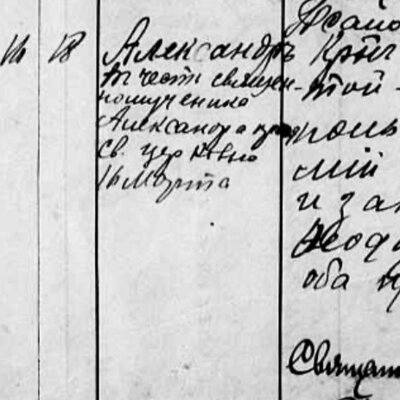 16 18 Александръ
въ честь священ-
номученика
Александра
Св. церковью
16 Марта
той -
мій
и за
Ѳеод
оба
Священ